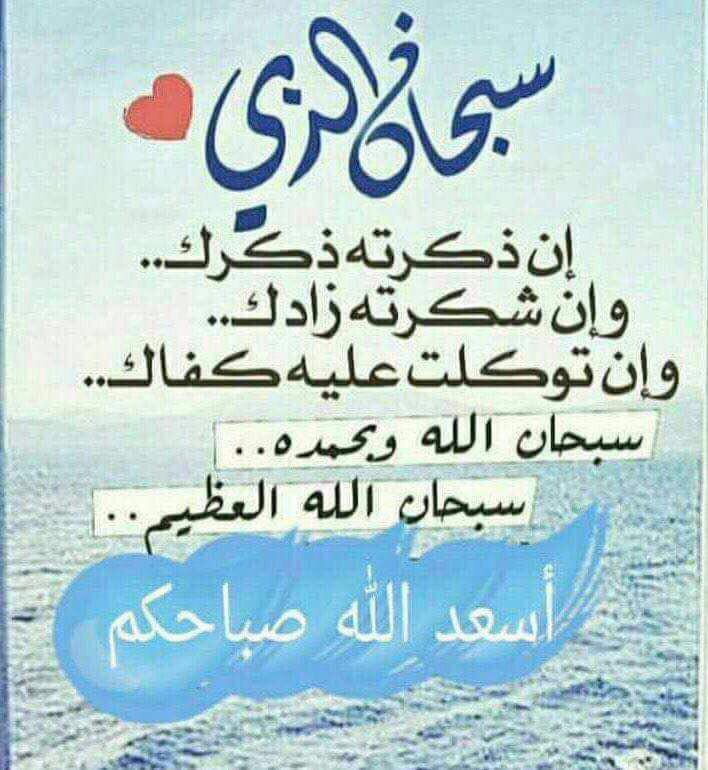 سبحان الذي
إن ذكرته ذكرك..
وإن شكرته زادك..
وإن توكلت عليه كفاك..
سبحان الله وبحمده..
سبحان الله العظيم..
أسعد الله صباحكم